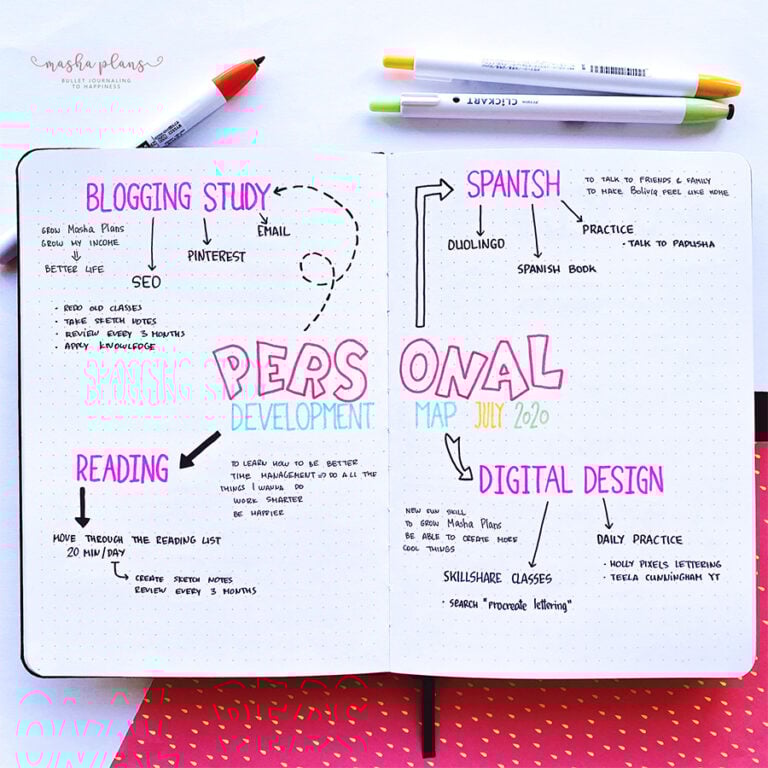 masha plans
BULLET JOURNALING
TO HAPPINESS
CLiCKART
BLOGGING STUDY
GROW Masha Plans
GROW MY INCOME
BETTER LIFE
SEO
PINTEREST
EMAIL
• REDO OLD CLASSES
• TAKE SKETCH NOTES
• REVIEW EVERY 3 MONTHS
• APPLY KNOWLEDGE
SPANISH
TO TALK TO FRIENDS & FAMILY
TO MAKE Bolivia FEEL LIKE HOME
DUOLINGO
SPANISH BOOK
PRACTICE
• TALK TO PADUSHA
PERSONAL
DEVELOPMENT MAP JULY 2020
READING
TO LEARN HOW TO BE BETTER
TIME MANAGEMENT => DO ALL THE
THINGS I WANNA DO
WORK SMARTER
BE HAPPIER
MOVE THROUGH THE READING LIST
20 MIN/DAY
CREATE SKETCH NOTES
REVIEW EVERY 3 MONTHS
DIGITAL DESIGN
NEW FUN SKILL
TO GROW Masha Plans
BE ABLE TO CREATE MORE
COOL THINGS
SKILLSHARE CLASSES
• SEARCH "Procreate lettering"
DAILY PRACTICE
• HOLLY PIXELS LETTERING
• TEELA CUNNINGHAM YT